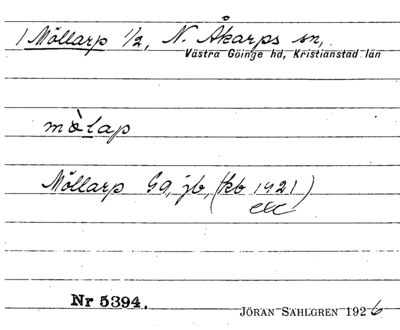 1 Möllarp 1/2, N. Åkarps sn,
Västra Göinge hd, Kristianstad län
Möllarp GA, jb, (kb 1921)
Nr 5394.
JÖRAN SAHLGREN 1926